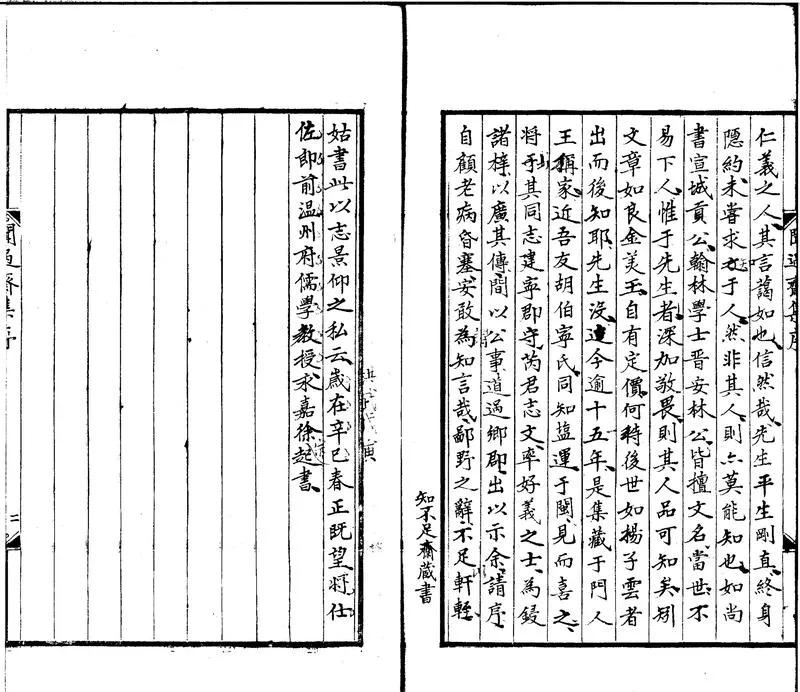 仁義之人其言藹如也信然哉先生平生剛直終身
隱約未嘗求于人然非其人則亦莫能知也如尚
書宣城貢公翰林學士晉安林公皆擅文名當世不
易下人惟于先生者深加敬畏則其人品可知矣矧
文章如良金美玉自有定價何待後世如楊子雲者
出而後知耶先生沒迨今逾十五年是集藏于門人
王稱家近吾友胡伯寧氏同知塩運于閩見而喜之
將于其同志建寧郡守芮君志文率好義之士為鋟
諸梓以廣其傳間以公事道過鄉郡出以示余請序
自顧老病昏塞安敢為知言哉鄙野之辭不足軒輊
知不足齋藏書
姑書此以志景仰之私云歲在辛巳春正既望將仕
佐郎前温州府儒學教授永嘉徐起書
聞過齋集序
二